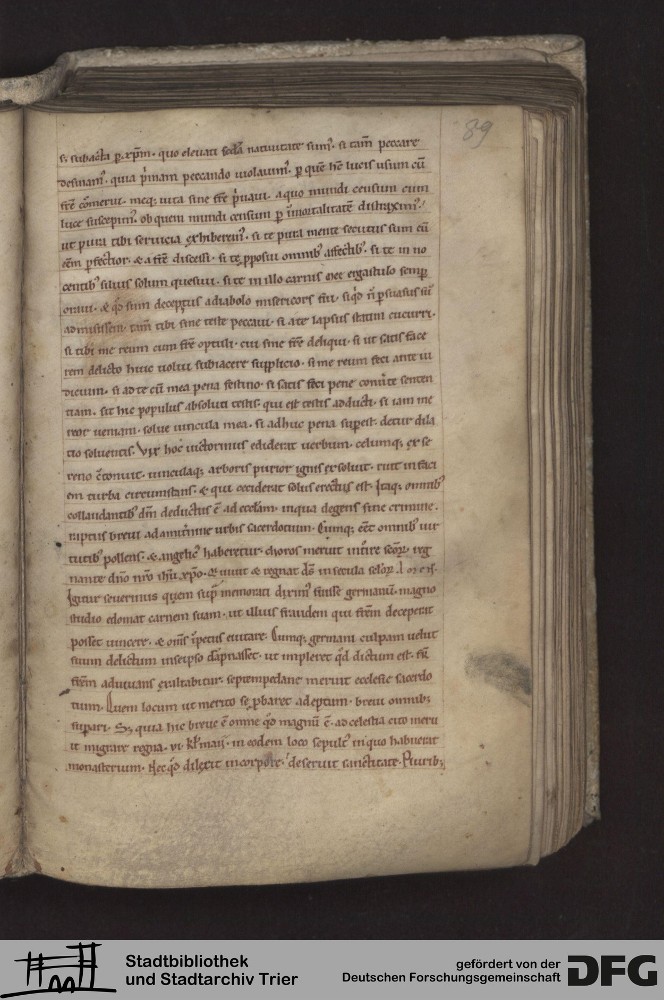 89
s. subacta p. xpm. quo elevati secda nativitate sum9. si tam peccare
desinam9. quia p'mam peccando violavim9. p que hc lucis usum cu
fre comerui. meq; vita sine fre p'vavi. a quo mundi censum cum
luce suscepim9. ob quem mundi censum p inmortalitate distraxim9.
ut pura tibi servicia exhiberem9. si te pura mente secutus sum cu
eem pfectior. & a fre discessi. si te pposui omnib9 affectib9. si te in no
centib9 silvis solum quesivi. si te in illo carnis mee ergastulo semp
timui. & qd sum deceptus a diabolo misericors fui. si qd n psuasus fu
admisissem. tam tibi sine teste peccavi. si a te lapsus statim cucurri.
si tibi me reum cum fre optuli. cui sine fre deliqui. si ut satis face
rem delicto huic volui subiacere supplicio. si me reum feci ante iu
dicium. si ad te cu mea pena festino. si satis feci pene comite senten
tiam. sit hic populus absoluti testis. qui est testis adducti. si iam me
reor veniam. solve vincula mea. si adhuc pena supest. detur dila
tio solventis. Vix hoc victorinus ediderat verbum. celumq; ex se
reno etonuit. vinculaq; arboris purior ignis exsolvit. ruit in faci
em turba circumstans. & qui occiderat solus erectus est. Itaq; omnib9
collaudantib9 dm deductus e ad ecclam. in qua degens sine crimine.
raptus brevi ad amiternine urbis sacerdotium. Cumq; eet omnib9 vir
tutib9 pollens. & angelic9 haberetur. choros meruit int'ire scor. reg
nante dno nro ihu xpo. Qui vivit & regnat ds in secula sclor. Amen.
Igitur severinus quem sup' memorati diximus fuisse germanu. magno
studio edomat carnem suam. ut illius fraudem qui frem deceperat
posset vincere. & oms ipetus evitare. Cumq; germani culpam velut
suum delictum in seipso dapnasset. ut impleret qd dictum est. fr
frem adiuvans exaltabitur. septempedane meruit ecclesie sacerdo
tium. Quem locum ut merito se pbaret adeptum. brevi omnib;
supari. S; quia hic breve e omne qd magnu e. ad celestia cito meru
it migrare regna. vi. kl maii. in eodem loco sepult9 in quo habuerat
monasterium. Nec qd dilexit in corpore. deseruit sanctitate. Plurib;
Stadtbibliothek
und Stadtarchiv Trier
gefördert von der
Deutschen Forschungsgemeinschaft
DFG